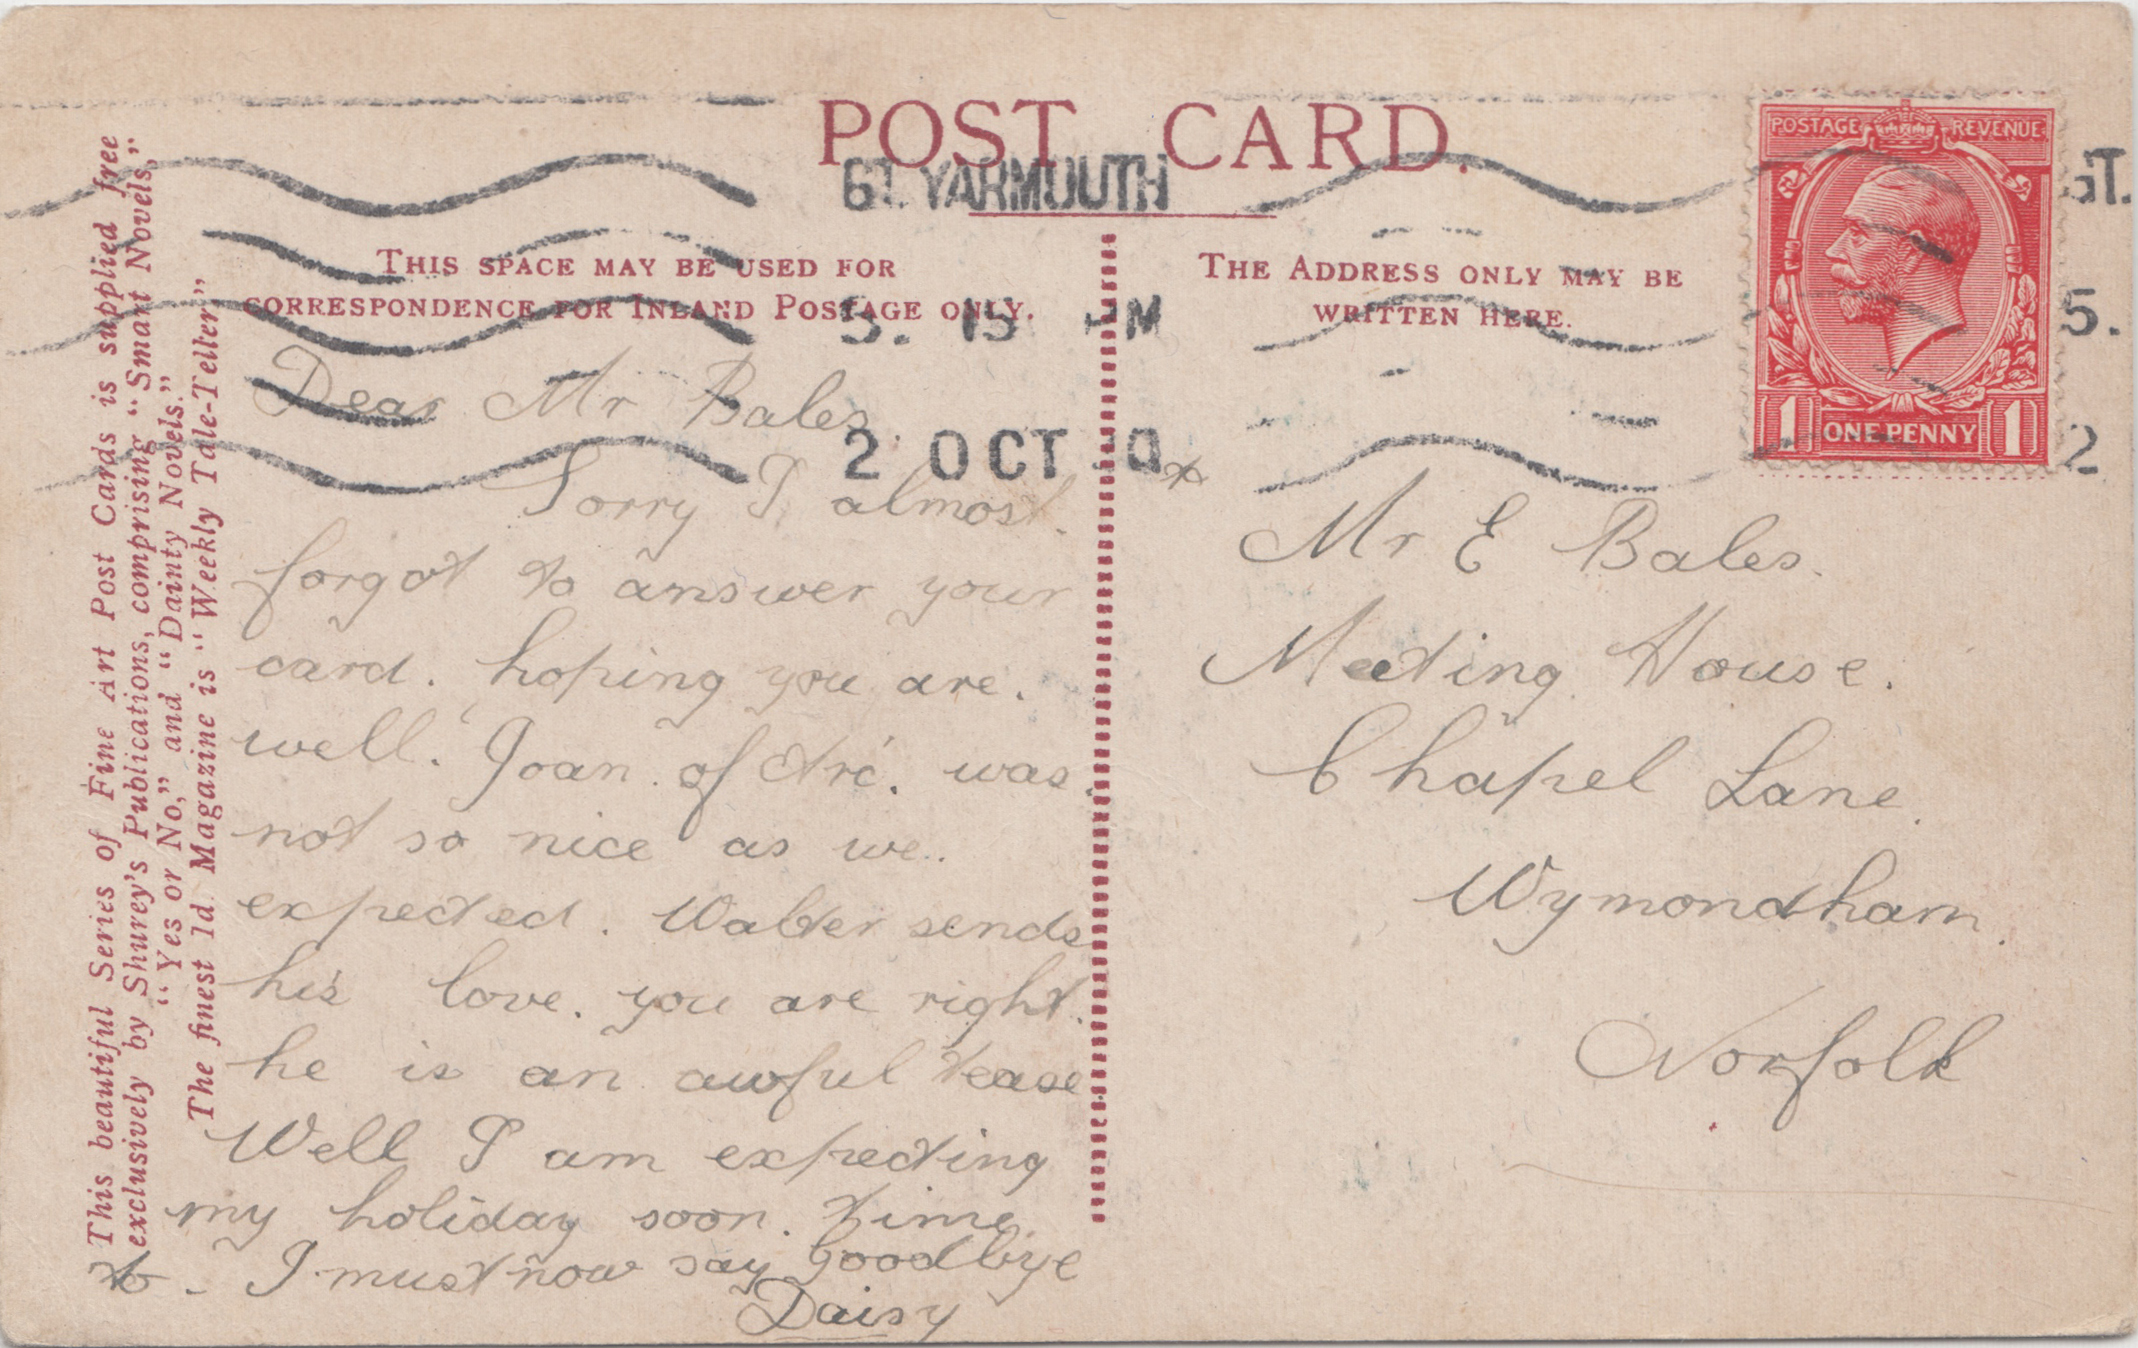 POST CARD.
GT. YARMOUTH
5. 15 PM
2 OCT
GT.
5.
2
POSTAGE REVENUE
1 ONE PENNY 1
This beautiful Series of Fine Art Post Cards is supplied free
exclusively by Shurey's Publications, comprising "Smart Novels,"
"Yes or No," and "Dainty Novels."
The finest 1d. Magazine is "Weekly Tale-Teller."
THIS SPACE MAY BE USED FOR
CORRESPONDENCE FOR INLAND POSTAGE ONLY.
Dear Mr Bales.
Sorry I almost.
forgot to answer your
card. hoping you are.
well. Joan of Arc. was.
not so nice as we.
expected. Walter sends
his love. you are right.
he is an awful tease
Well I am expecting
my holiday soon. time
to - I must now say goodbye
Daisy
THE ADDRESS ONLY MAY BE
WRITTEN HERE.
Mr E Bales.
Meeting House.
Chapel Lane.
Wymondham.
Norfolk